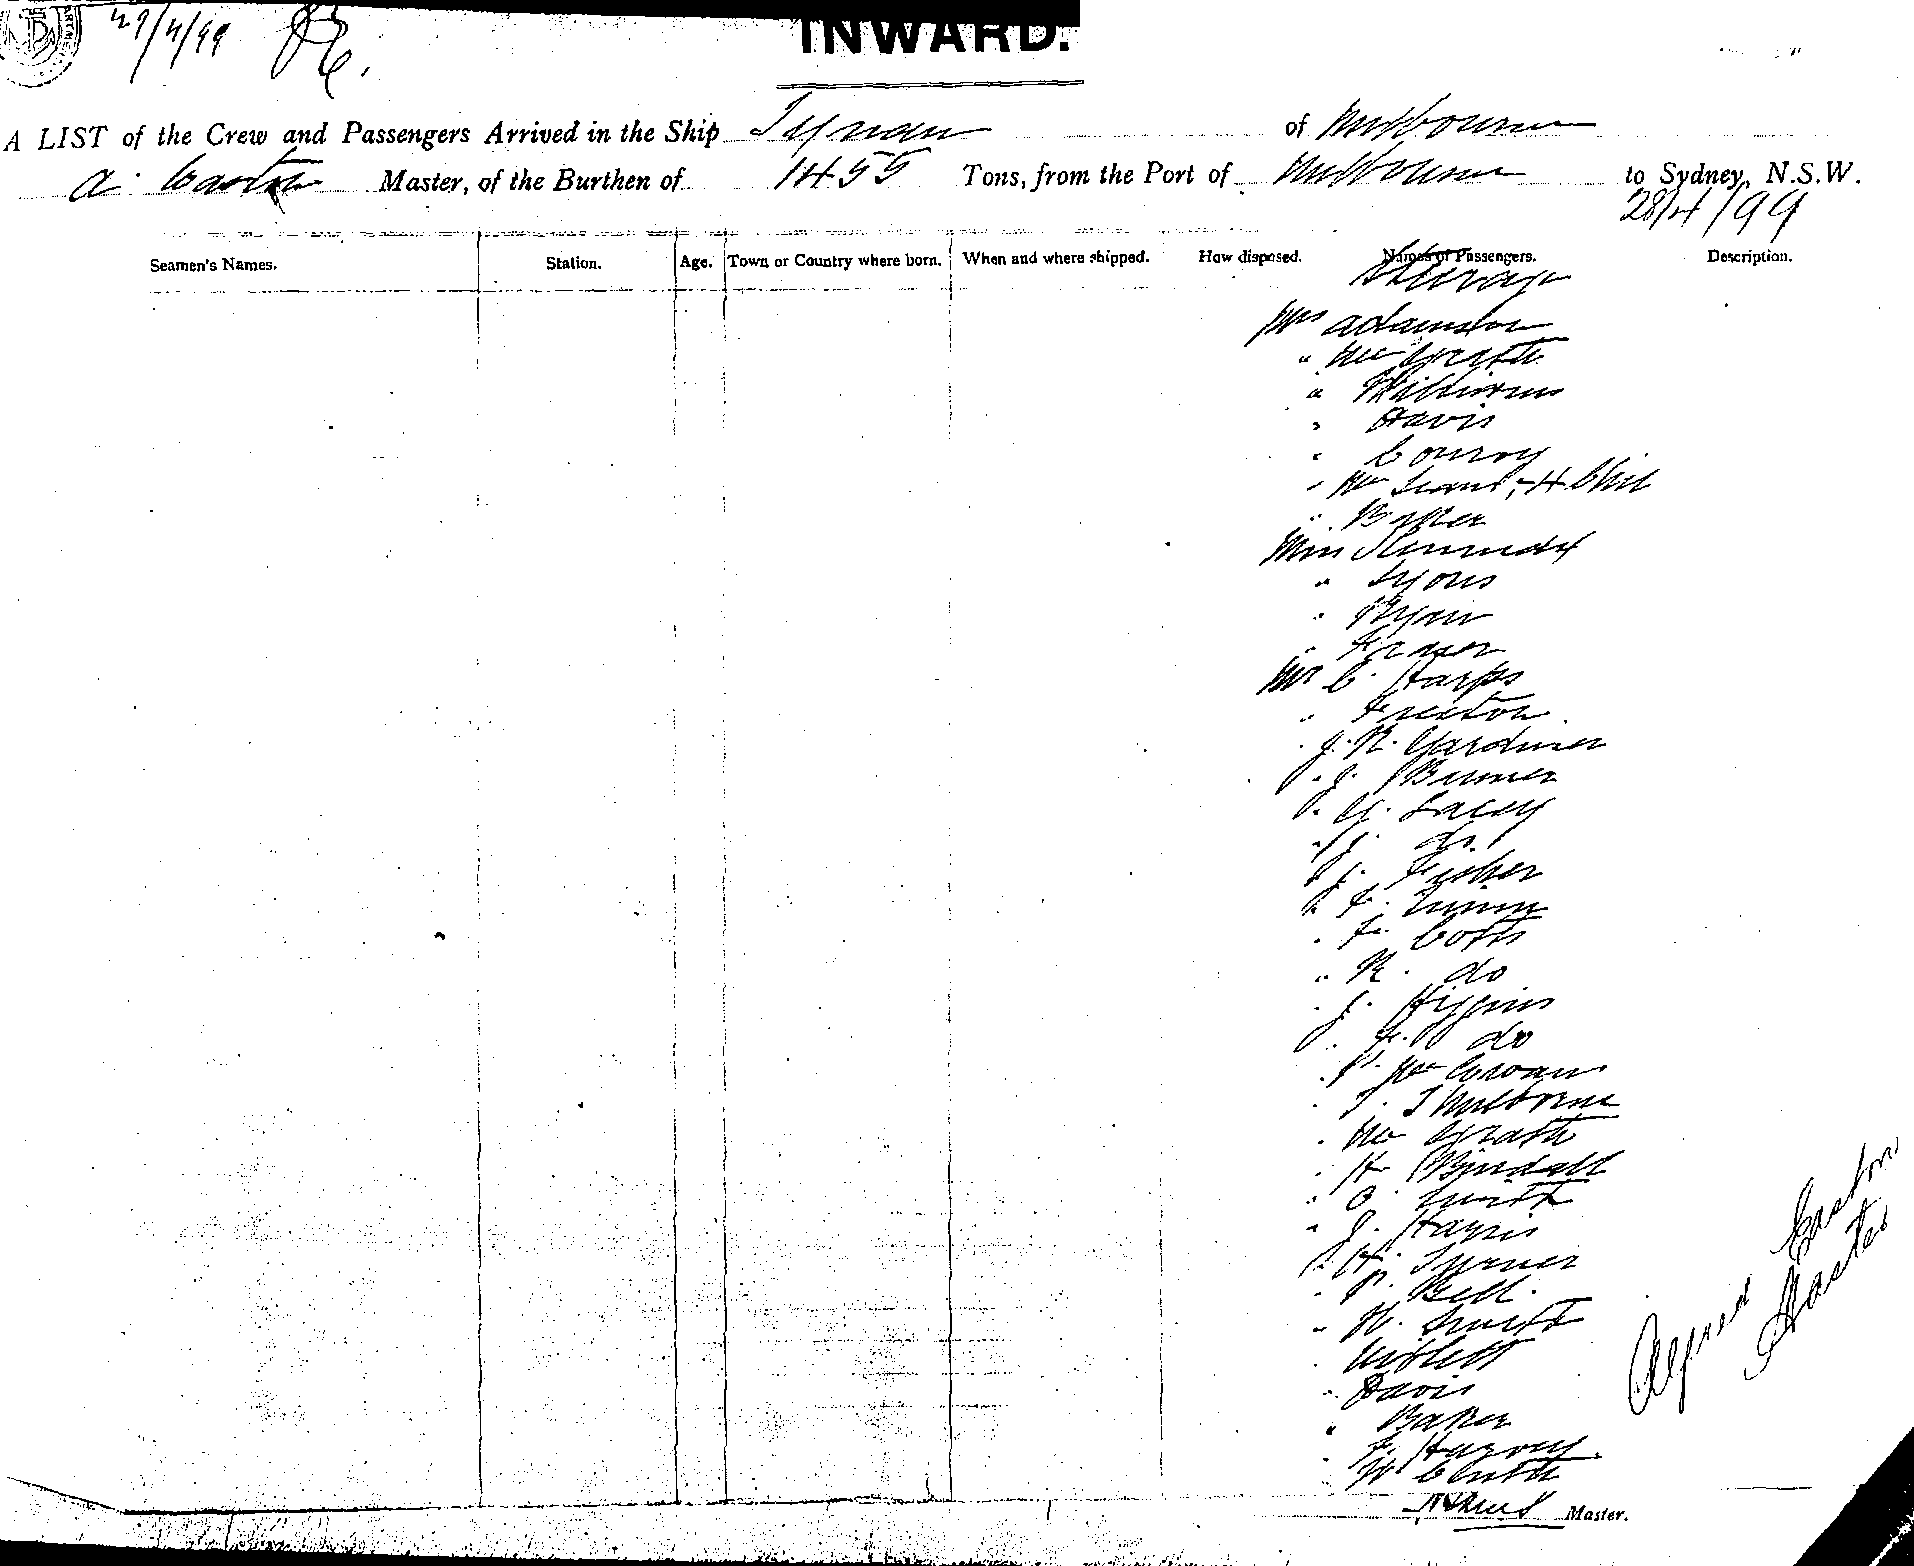 29/4/99
INWARD.
A LIST of the Crew and Passengers Arrived in the Ship of Melbourne
A. Easton Master, of the Burthen of 1455 Tons, from the Port of Melbourne to Sydney, N.S.W.
28/4/99
Seamen's Names. Station. Age. Town or Country where born. When and where shipped. How disposed. Names of Passengers. Description.
Steerage
Mrs Adamson
" McGrath
" Williams
" Davis
" Conroy
" Mc 4 Chil
" Baker
Miss Kennedy
" Lyons
" Ryan
" Fraser
Mr C. Harps
"
" J. R. Gardiner
" J.
" G. Lacey
" J. do
" J. Fisher
" F.
" F. Cotts
" R. do
" J. Higgins
" F. do
" P. Mc
" T.
" McGrath
" H. Kendall
" O. Smith
" J. Harris
" H. Turner
" P. Bell
" W. Smith
" Niblett
" Davis
" Baker
" F. Harvey
" W.
Alfred Easton
Master
Master.